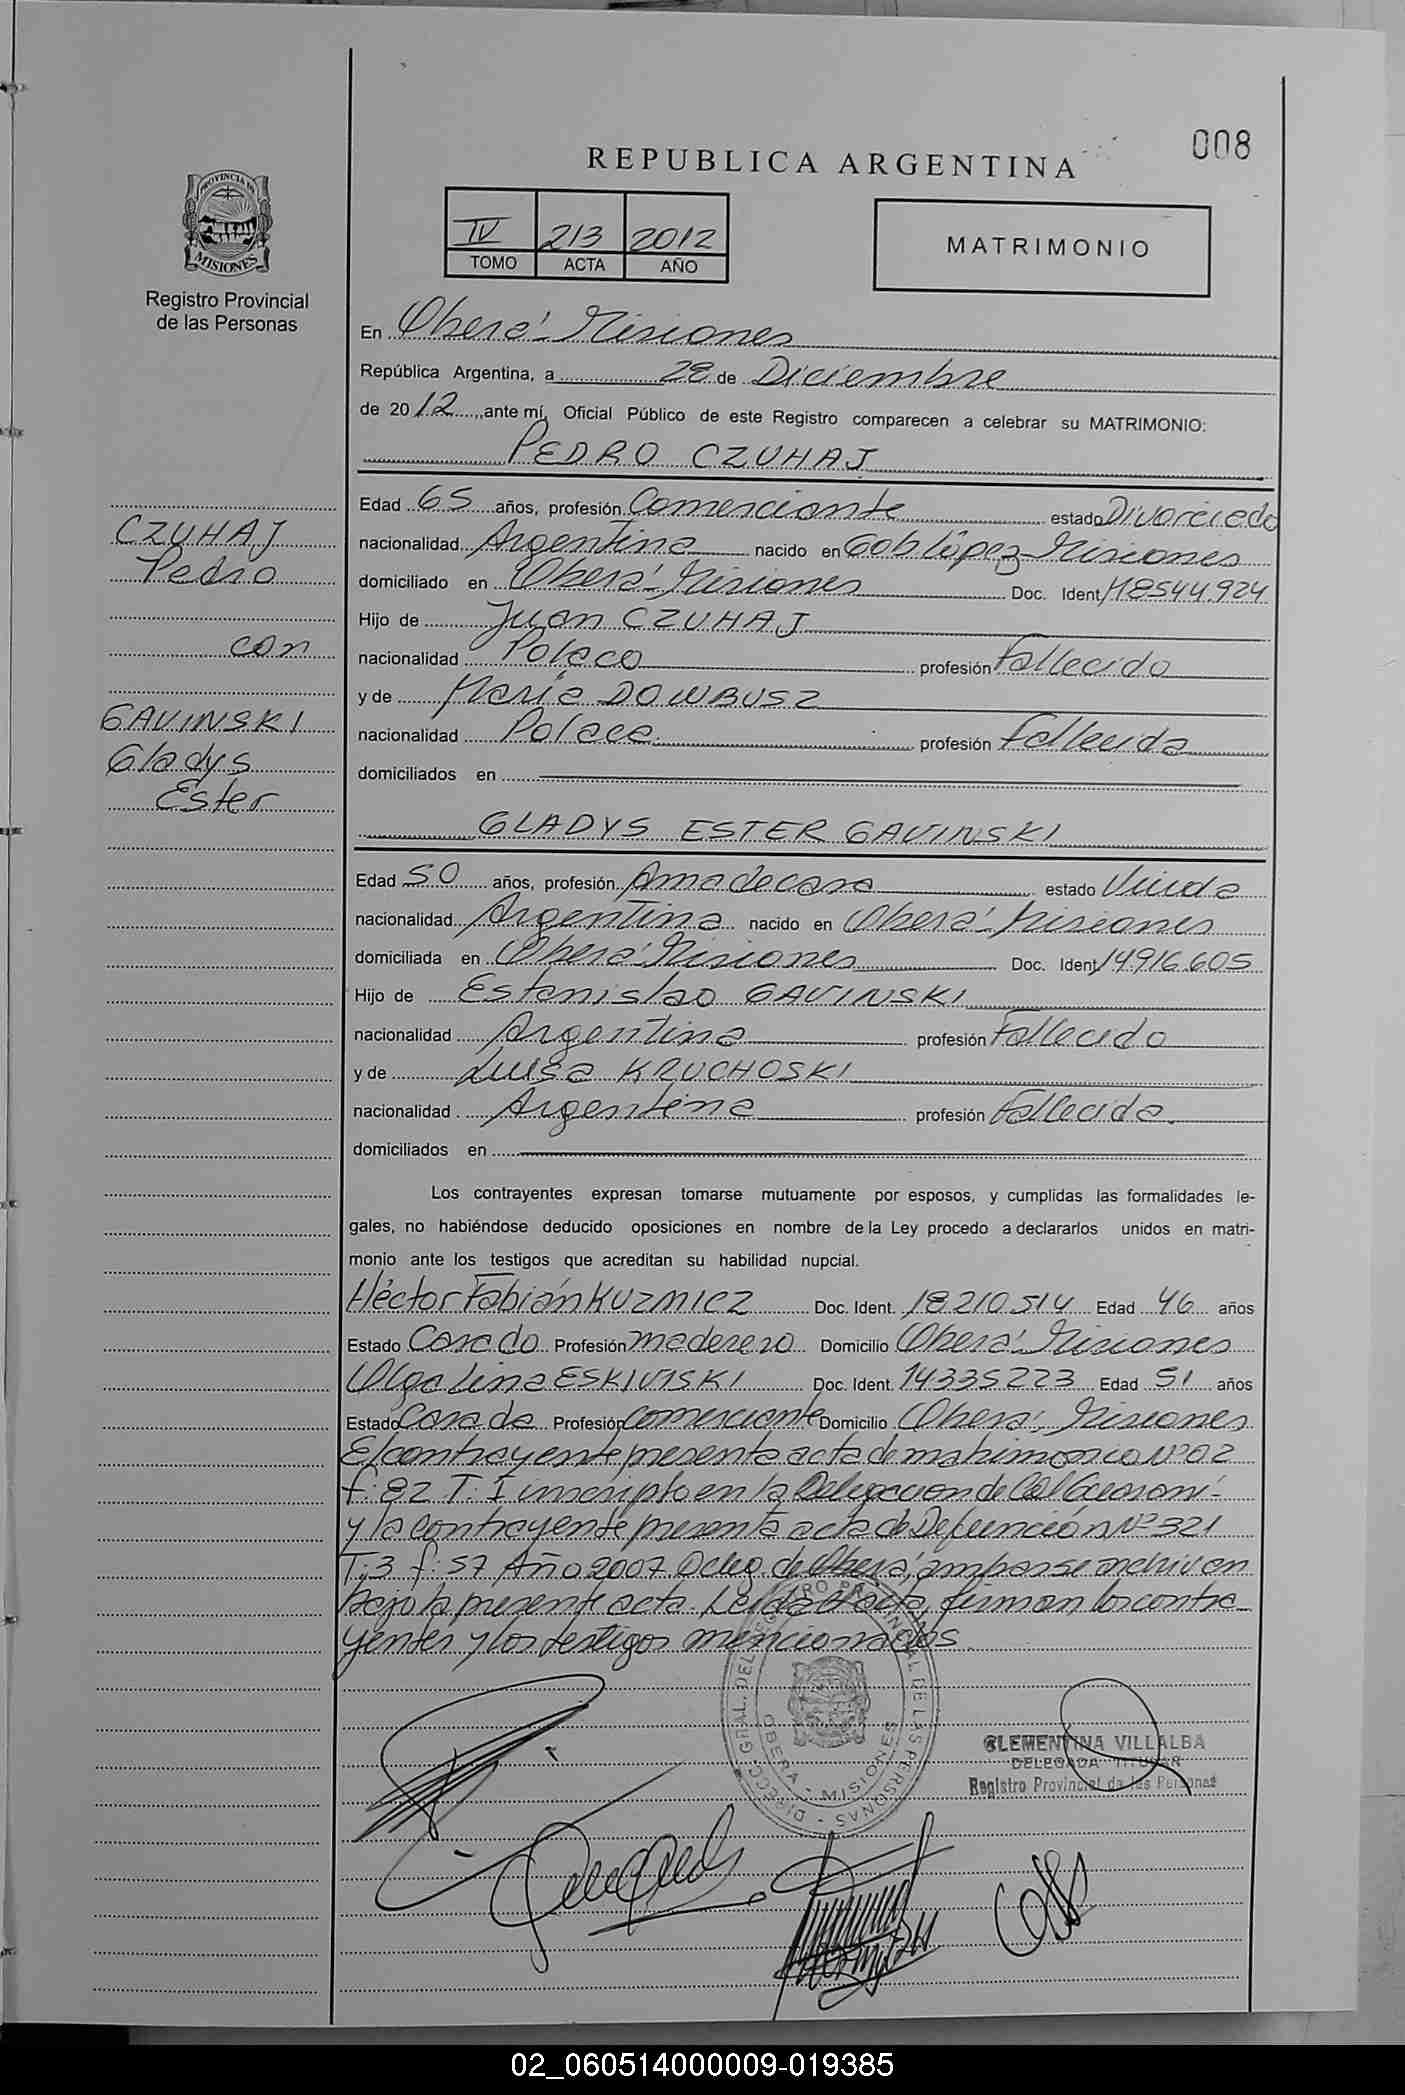 008
REPUBLICA ARGENTINA
IV 213 2012
TOMO ACTA AÑO
MATRIMONIO
PROVINCIA DE
MISIONES
Registro Provincial
de las Personas
En Oberá - Misiones
República Argentina, a 28 de Diciembre
de 2012, ante mí, Oficial Público de este Registro comparecen a celebrar su MATRIMONIO:
PEDRO CZUHAJ
Edad 65 años, profesión Comerciante estado Divorciado
nacionalidad Argentina nacido en Gob López Misiones
domiciliado en Oberá - Misiones Doc. Ident M8544924
Hijo de Juan CZUHAJ
nacionalidad Polaco profesión Fallecido
y de María DOWBUSZ
nacionalidad Polaca profesión Fallecida
domiciliados en
CZUHAJ
Pedro
con
GAVINSKI
Gladys
Ester
GLADYS ESTER GAVINSKI
Edad 50 años, profesión Amadecasa estado Viuda
nacionalidad Argentina nacido en Oberá - Misiones
domiciliada en Oberá Misiones Doc. Ident 14.916.605
Hijo de Estanislao GAVINSKI
nacionalidad Argentina profesión Fallecido
y de Luisa KRUCHOSKI
nacionalidad Argentina profesión Fallecida.
domiciliados en
Los contrayentes expresan tomarse mutuamente por esposos, y cumplidas las formalidades le-
gales, no habiéndose deducido oposiciones en nombre de la Ley procedo a declararlos unidos en matri-
monio ante los testigos que acreditan su habilidad nupcial.
Héctor Fabián KUZMICZ Doc. Ident. 18.210.514 Edad 46 años
Estado Casado Profesión maderero Domicilio Oberá - Misiones
Olga Lina ESKIVISKI Doc. Ident. 14335223 Edad 51 años
Estado Casada Profesión comerciante Domicilio Oberá, Misiones
El contrayente presenta acta de matrimonio Nº 02
f: 82 T: I inscripto en la Delegacion de Cél Guaraní -
y la contrayente presenta acta de Defunción Nº 321
T: 3 f: 57 Año 2007 Deleg. de Oberá, ambas se archivan
bajo la presente acta. Leida el acta, firman los contra_
yentes y los testigos mencionados.
DIRECC. GRAL. DEL REGISTRO PROVINCIAL DE LAS PERSONAS
OBERA - MISIONES
CLEMENTINA VILLALBA
DELEGADA TITULAR
Registro Provincial de las Personas
02_060514000009-019385